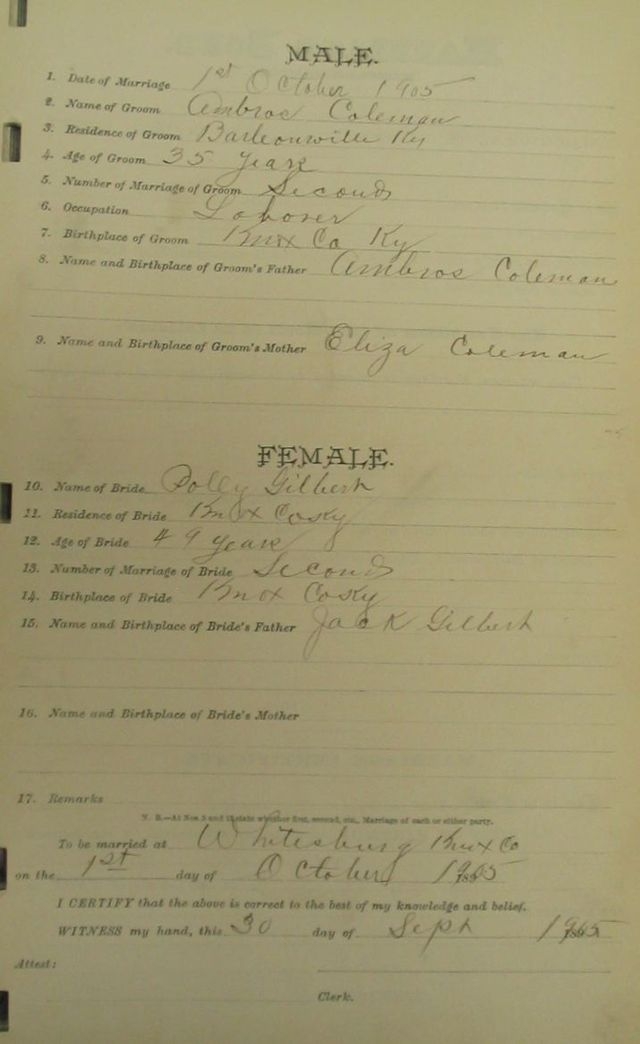 MALE.
1. Date of Marriage 1st October 1905
2. Name of Groom Ambros Coleman
3. Residence of Groom Ky
4. Age of Groom 35 years
5. Number of Marriage of Groom Second
6. Occupation Laborer
7. Birthplace of Groom Knox Co Ky
8. Name and Birthplace of Groom's Father Ambros Coleman
9. Name and Birthplace of Groom's Mother Eliza Coleman
FEMALE.
10. Name of Bride Polly Gilbert
11. Residence of Bride Knox Co Ky
12. Age of Bride 49 years
13. Number of Marriage of Bride Second
14. Birthplace of Bride Knox Co Ky
15. Name and Birthplace of Bride's Father Jack Gilbert
16. Name and Birthplace of Bride's Mother
17. Remarks
N. B.—At Nos 5 and 13 state whether first, second, etc., Marriage of each or either party.
To be married at Whitesburg Knox Co
on the 1st day of October 1905
I CERTIFY that the above is correct to the best of my knowledge and belief.
WITNESS my hand, this 30 day of Sept 1905
Attest:
Clerk.